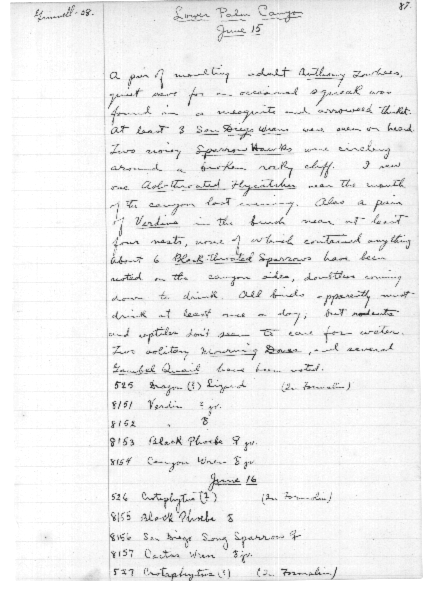 Grinnell-08.
87.
Lower Palm Canyon
June 15
A pair of moulting adult Anthony Towhees,
quiet save for an occasional squeak was
found in a mesquite and arrowweed thicket.
At least 3 San Diego Wrens were seen or heard.
Two noisy Sparrow Hawks were circling
around a broken rocky cliff. I saw
one Ash-throated Flycatcher near the mouth
of the canyon last evening. Also a pair
of Verdins in the brush near at least
four nests, none of which contained anything
About 6 Black-throated Sparrows have been
noted on the canyon sides, doubtless coming
down to drink. All birds apparently must
drink at least once a day, but rodents
and reptiles don't seem to care for water.
Two solitary Mourning Doves, and several
Gambel Quail have been noted.
525 Dragon (?) Lizard (In Formalin)
8151 Verdin jv.
8152 "
8153 Black Phoebe ♀ jv.
8154 Canyon Wren jv.
June 16
526 Crotaphytus (?) (In Formalin)
8155 Black Phoebe
8156 San Diego Song Sparrow ♀
8157 Cactus Wren jv.
527 Crotaphytus (?) (In Formalin)